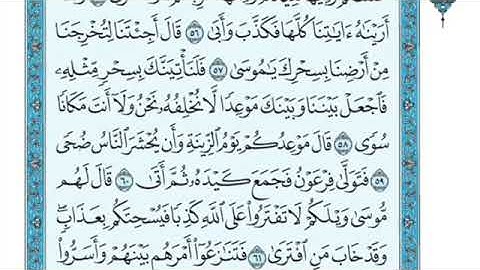 أَرَيْنَٰهُ ءَايَٰتِنَا كُلَّهَا فَكَذَّبَ وَأَبَىٰ ٥٦ قَالَ أَجِئْتَنَا لِتُخْرِجَنَا
مِنْ أَرْضِنَا بِسِحْرِكَ يَٰمُوسَىٰ ٥٧ فَلَنَأْتِيَنَّكَ بِسِحْرٍ مِّثْلِهِۦ
فَٱجْعَلْ بَيْنَنَا وَبَيْنَكَ مَوْعِدًا لَّا نُخْلِفُهُۥ نَحْنُ وَلَآ أَنتَ مَكَانًا
سُوًى ٥٨ قَالَ مَوْعِدُكُمْ يَوْمُ ٱلزِّينَةِ وَأَن يُحْشَرَ ٱلنَّاسُ ضُحًى
٥٩ فَتَوَلَّىٰ فِرْعَوْنُ فَجَمَعَ كَيْدَهُۥ ثُمَّ أَتَىٰ ٦٠ قَالَ لَهُم
مُّوسَىٰ وَيْلَكُمْ لَا تَفْتَرُوا۟ عَلَى ٱللَّهِ كَذِبًا فَيُسْحِتَكُم بِعَذَابٍ ۖ
وَقَدْ خَابَ مَنِ ٱفْتَرَىٰ ٦١ فَتَنَٰزَعُوٓا۟ أَمْرَهُم بَيْنَهُمْ وَأَسَرُّوا۟